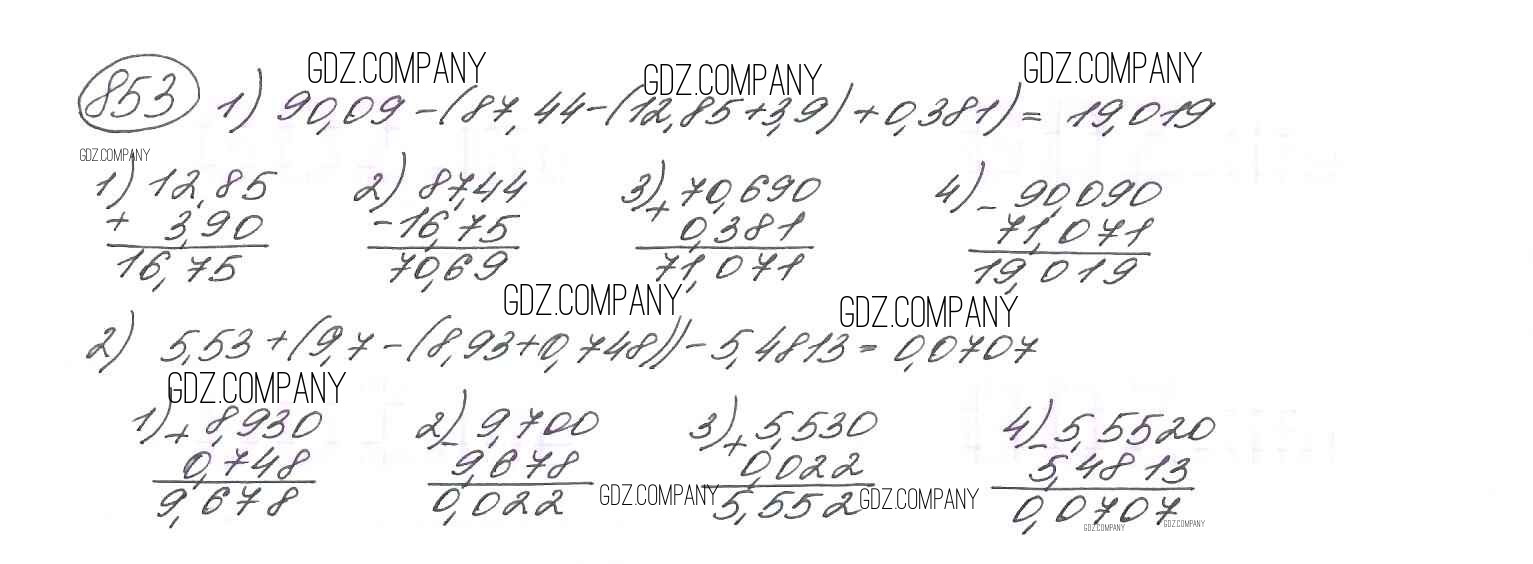 GDZ.COMPANY GDZ.COMPANY GDZ.COMPANY
853 1) 90,09 - (87,44 - (12,85 + 3,9) + 0,381) = 19,019
GDZ.COMPANY
1) 12,85 2) 87,44 3) 70,690 4) 90,090
+ 3,90 - 16,75 + 0,381 - 71,071
16,75 70,69 71,071 19,019
GDZ.COMPANY GDZ.COMPANY
2) 5,53 + (9,7 - (8,93 + 0,748)) - 5,4813 = 0,0707
GDZ.COMPANY
1) + 8,930 2) - 9,700 3) + 5,530 4) - 5,5520
0,748 9,678 0,022 5,4813
9,678 0,022 GDZ.COMPANY 5,552 GDZ.COMPANY 0,0707
GDZ.COMPANY GDZ.COMPANY